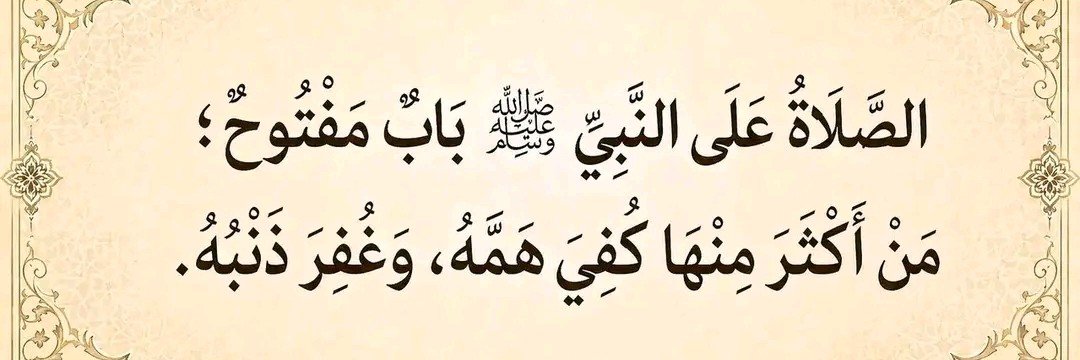 الصَّلَاةُ عَلَى النَّبِيِّ ﷺ بَابٌ مَفْتُوحٌ؛
مَنْ أَكْثَرَ مِنْهَا كُفِيَ هَمَّهُ، وَغُفِرَ ذَنْبُهُ.